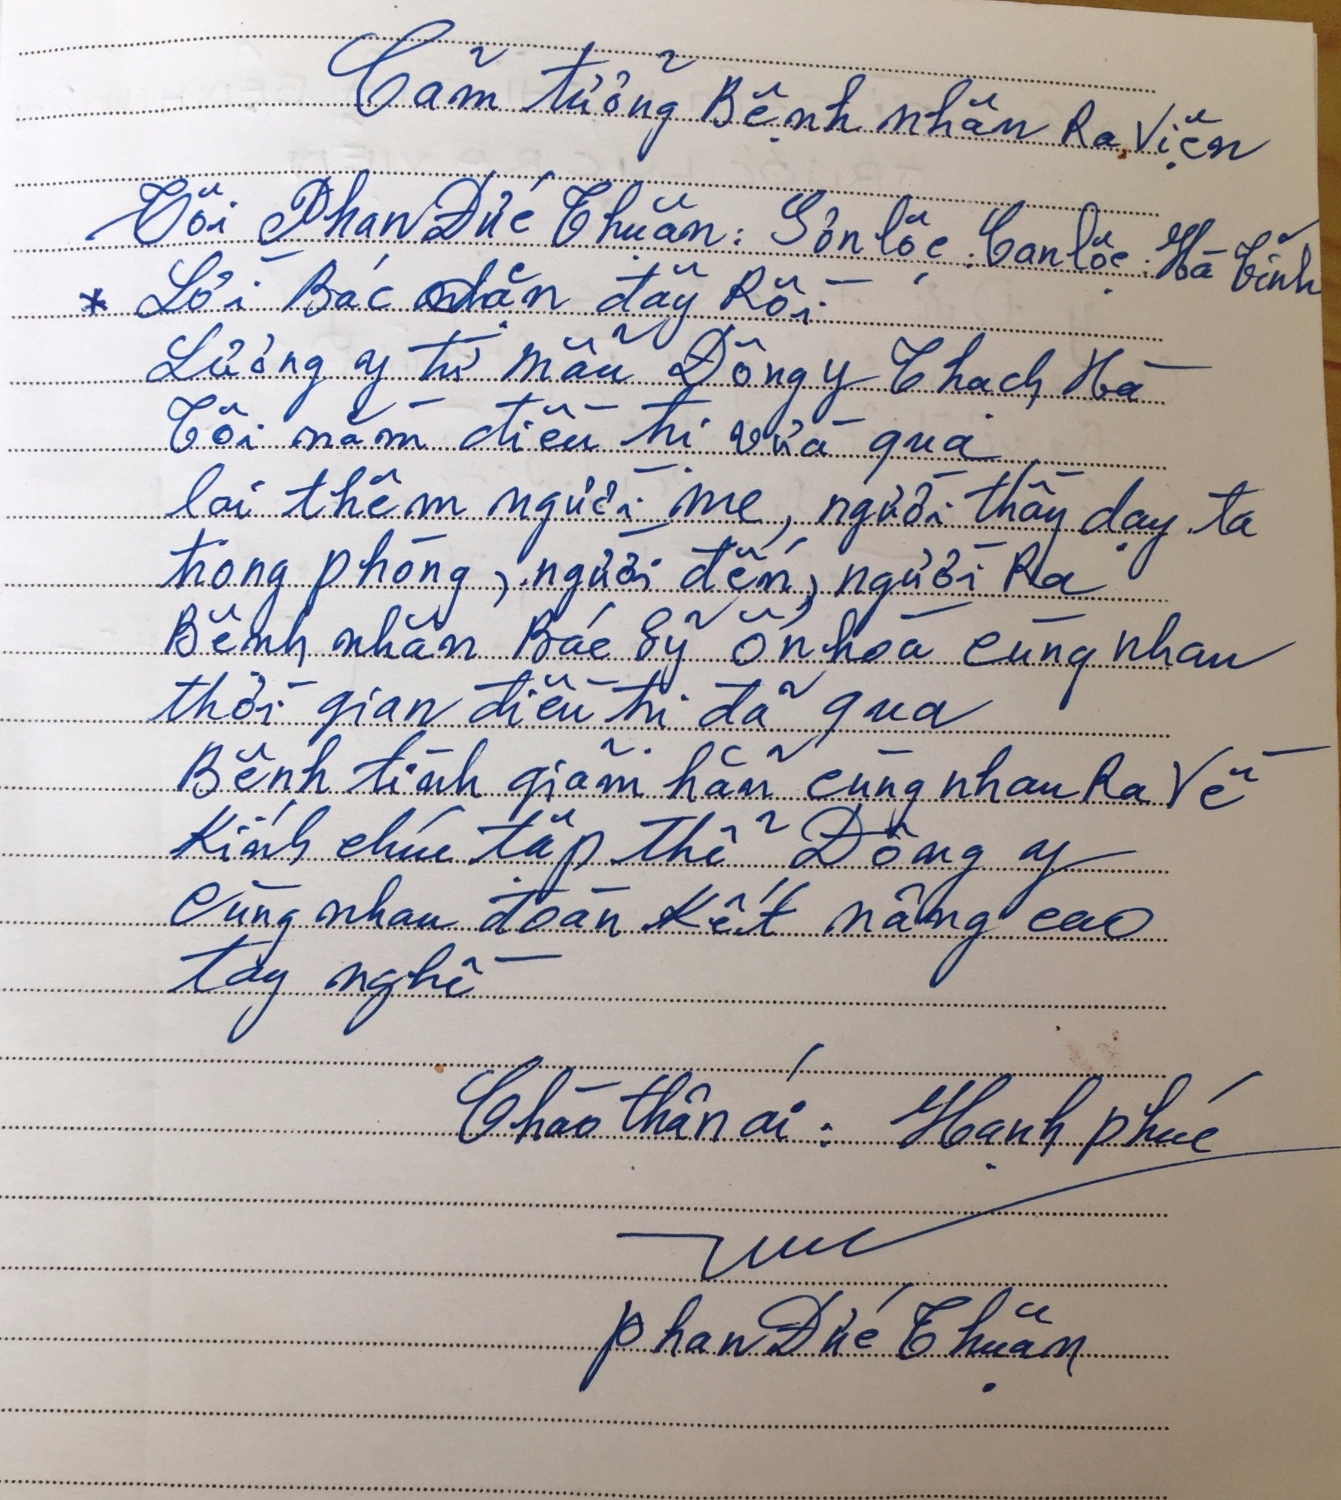 Cảm tưởng Bệnh nhân Ra Viện
Tôi Phan Đức Thuận: Sơn lộc. Can lộc. Hà Tĩnh
* Lời Bác nhận đấy Rồi
Lương y từ mẫu Đông y Thạch Hà
Tôi nằm điều trị vừa qua
lại thêm người mẹ, người thầy dạy ta
trong phòng, người đến, người Ra
Bệnh nhân Bác Sỹ ôn hòa cùng nhau
thời gian điều trị đã qua
Bệnh tình giảm hẳn cùng nhau Ra Về
Kính chúc tập thể Đông y
cùng nhau đoàn Kết nâng cao
tay nghề
Chào thân ái: Hạnh phúc
Phan Đức Thuận